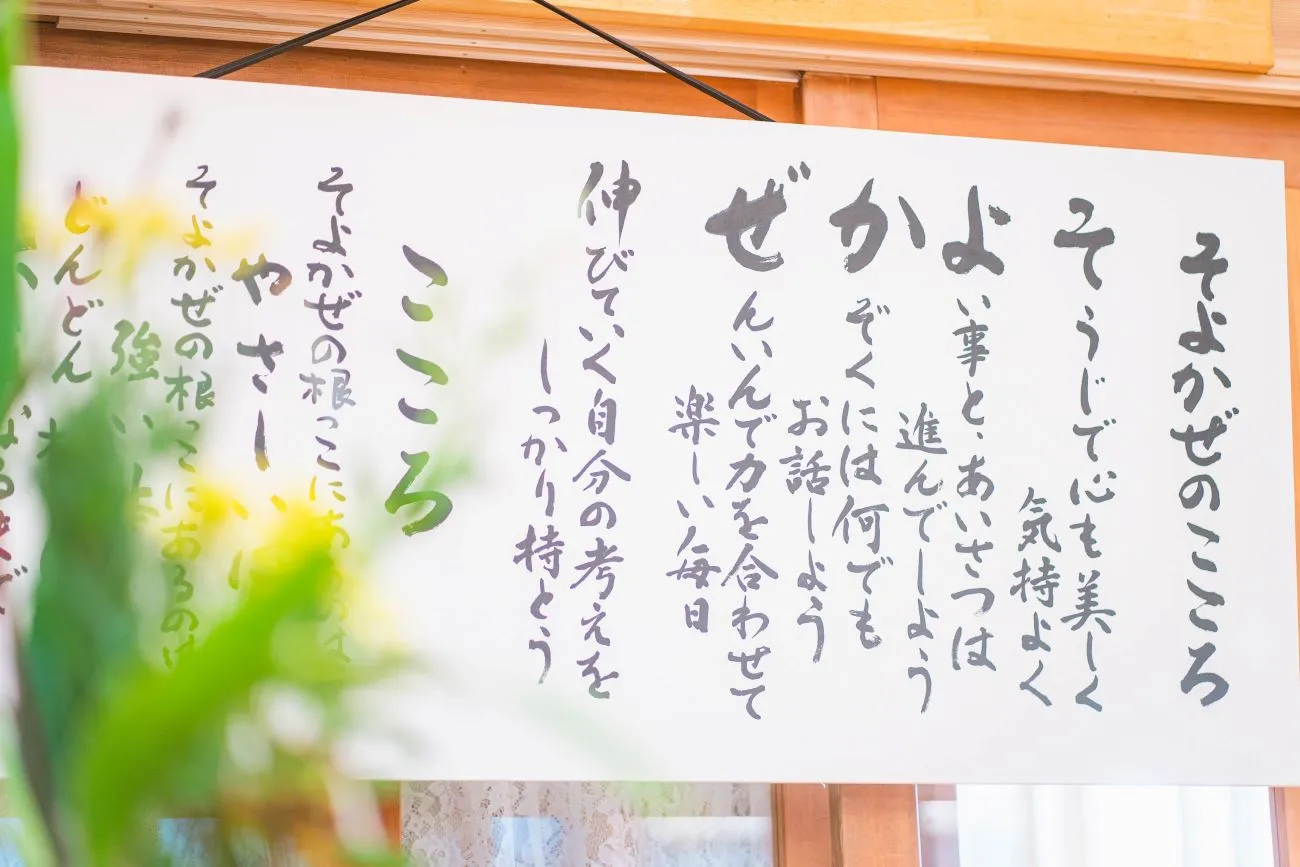 そよかぜのこころ
そうじで心も美しく
気持よく
よい事と、あいさつは
進んでしよう
かぞくには何でも
お話しよう
ぜんいんで力を合わせて
楽しい毎日
伸びていく自分の考えを
しっかり持とう
こころ
そよかぜの根っこに
やさしい
そよかぜの根っこにあるのは
強い
どんどん